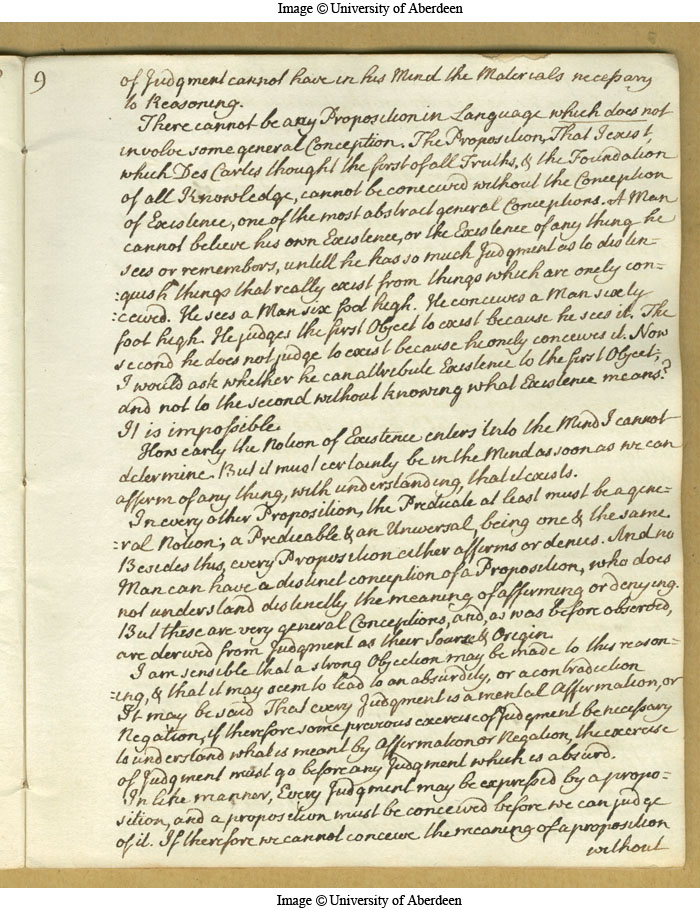 Image © University of Aberdeen
9
of Judgment cannot have in his Mind the Materials necessary
to Reasoning.
There cannot be any Proposition in Language which does not
involve some general Conception. The Proposition, That I exist,
which Des Cartes thought the first of all Truths, & the Foundation
of all Knowledge, cannot be conceived without the Conception
of Existence, one of the most abstract general Conceptions. A Man
cannot believe his own Existence, or the Existence of any thing he
sees or remembers, untill he has so much Judgment as to distin-
:quish things that really exist from things which are onely con=
:ceived. He sees a Man six foot high. He conceives a Man sixty
foot high. He judges the first Object to exist because he sees it. The
second he does not judge to exist because he onely conceives it. Now
I would ask whether he can attribute Existence to the first Object,
and not to the second without knowing what Existence means?
It is impossible.
How early the Notion of Existence enters into the Mind I cannot
determine. But it must certainly be in the Mind as soon as we can
affirm of any thing, with understanding, that it exists.
In every other Proposition, the Predicate at least must be a gene=
:ral Notion; a Predicable & an Universal being one & the same.
Besides this, every Proposition either affirms or denies. And no
Man can have a distinct conception of a Proposition, who does
not understand distinctly the meaning of affirming or denying.
But these are very general Conceptions, and, as was before observed,
are derived from Judgment as their Sourse & Origin.
I am sensible that a strong Objection may be made to this reason=
:ing, & that it may seem to lead to an absurdity, or a contradiction
It may be said That every Judgment is a mental Affirmation, or
Negation, if therefore some previous exercise of Judgment be necessary
to understand what is meant by Affirmation or Negation, the exercise
of Judgment must go before any Judgment which is absurd.
In like manner, Every Judgment may be expressed by a propo=
sition, and a proposition must be conceived before we can judge
of it. If therefore we cannot conceive the meaning of a proposition
without
Image © University of Aberdeen